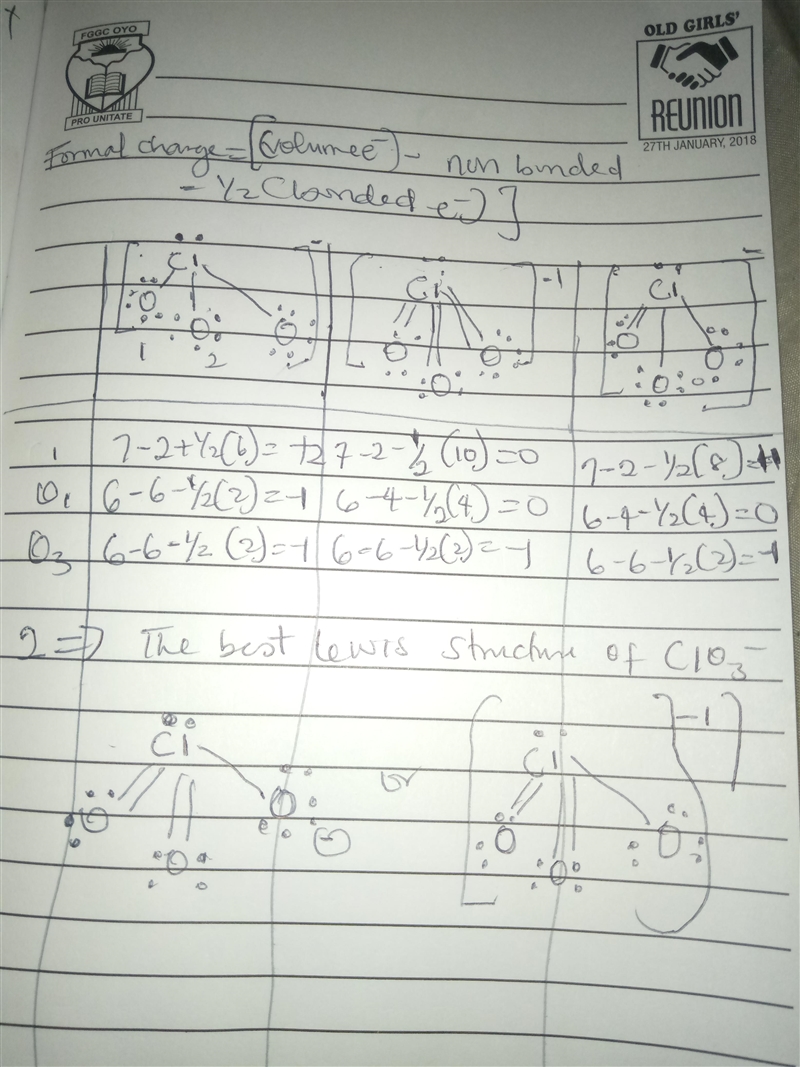 FGGC OYO
PRO UNITATE
OLD GIRLS'
REUNION
27TH JANUARY, 2018
Formal change = [(volume e-) - non bunded
- 1/2 (bonded e-)]
[Cl O O O]-
1 2
[Cl O O O]-1
[Cl O O O]-
1 7-2+1/2(6)=+2 7-2-1/2(10)=0 7-2-1/2(8)=+1
O1 6-6-1/2(2)=-1 6-4-1/2(4)=0 6-4-1/2(4)=0
O3 6-6-1/2(2)=-1 6-6-1/2(2)=-1 6-6-1/2(2)=-1
2 => The best lewis structure of ClO3-
Cl O O O (-) or [Cl O O O]-1